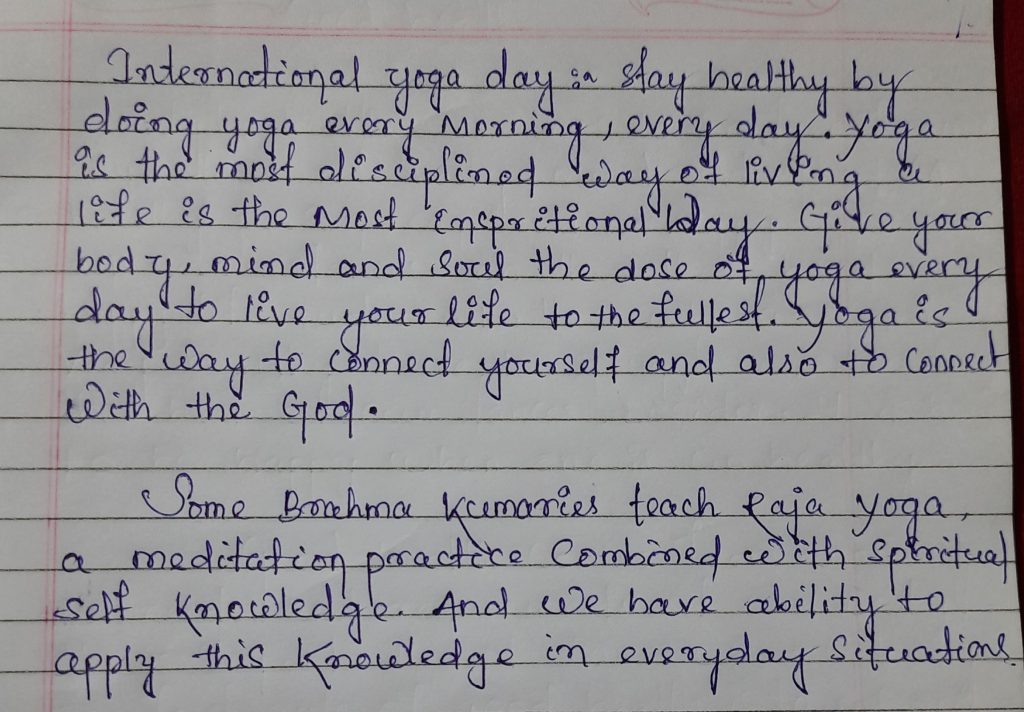 International yoga day :- stay healthy by
doing yoga every Morning, every day. Yoga
is the most disciplined way of living a
life is the Most inspritional way. Give your
body, mind and soul the dose of yoga every
day to live your life to the fullest. Yoga is
the way to connect yourself and also to Connect
With the God.
Some Brahma Kumaries teach Raja yoga,
a meditation practice Combined with spiritual
self Knowledge. And we have ability to
apply this Knowledge in everyday situations.